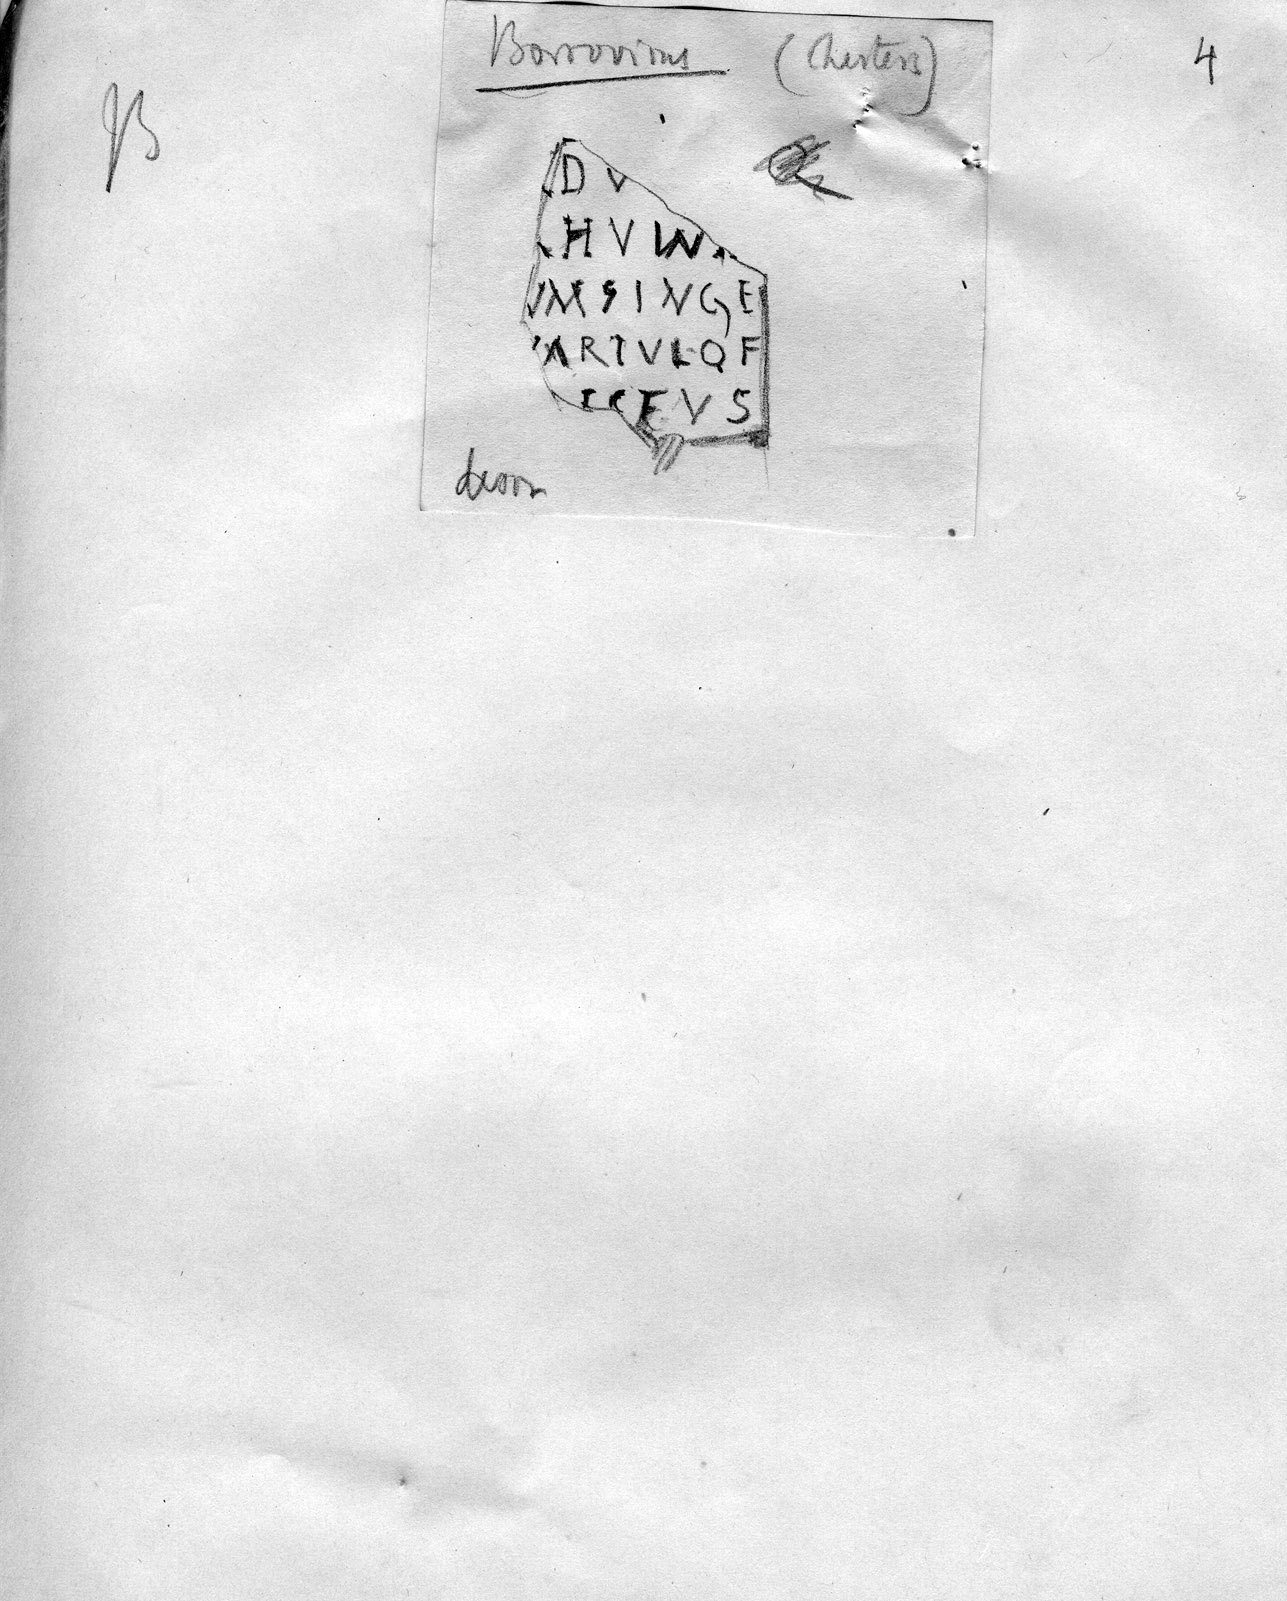 Borrovicus (Chesters) 4
B
D V
H V I N
M S I N G E
A R T V L O F
I C E V S
drawn